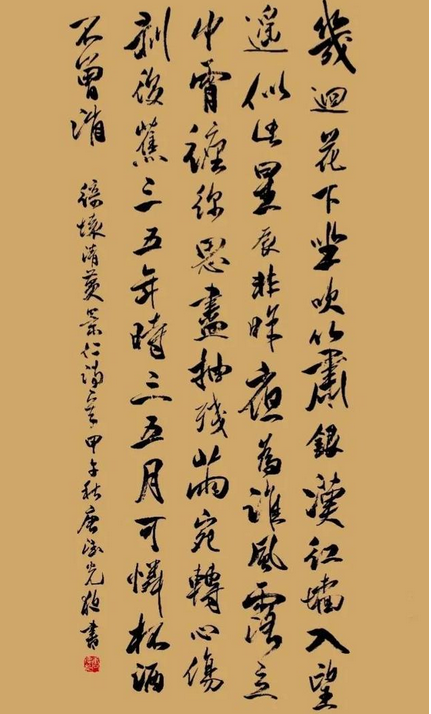 幾迴花下坐吹簫銀漢紅墻入望
遥似此星辰非昨夜為誰風露立
中霄纏綿思盡抽殘繭宛轉心傷
剝後蕉三五年時三五月可憐杯酒
不曾消
綺懷清黄景仁詩一章甲午秋唐光書